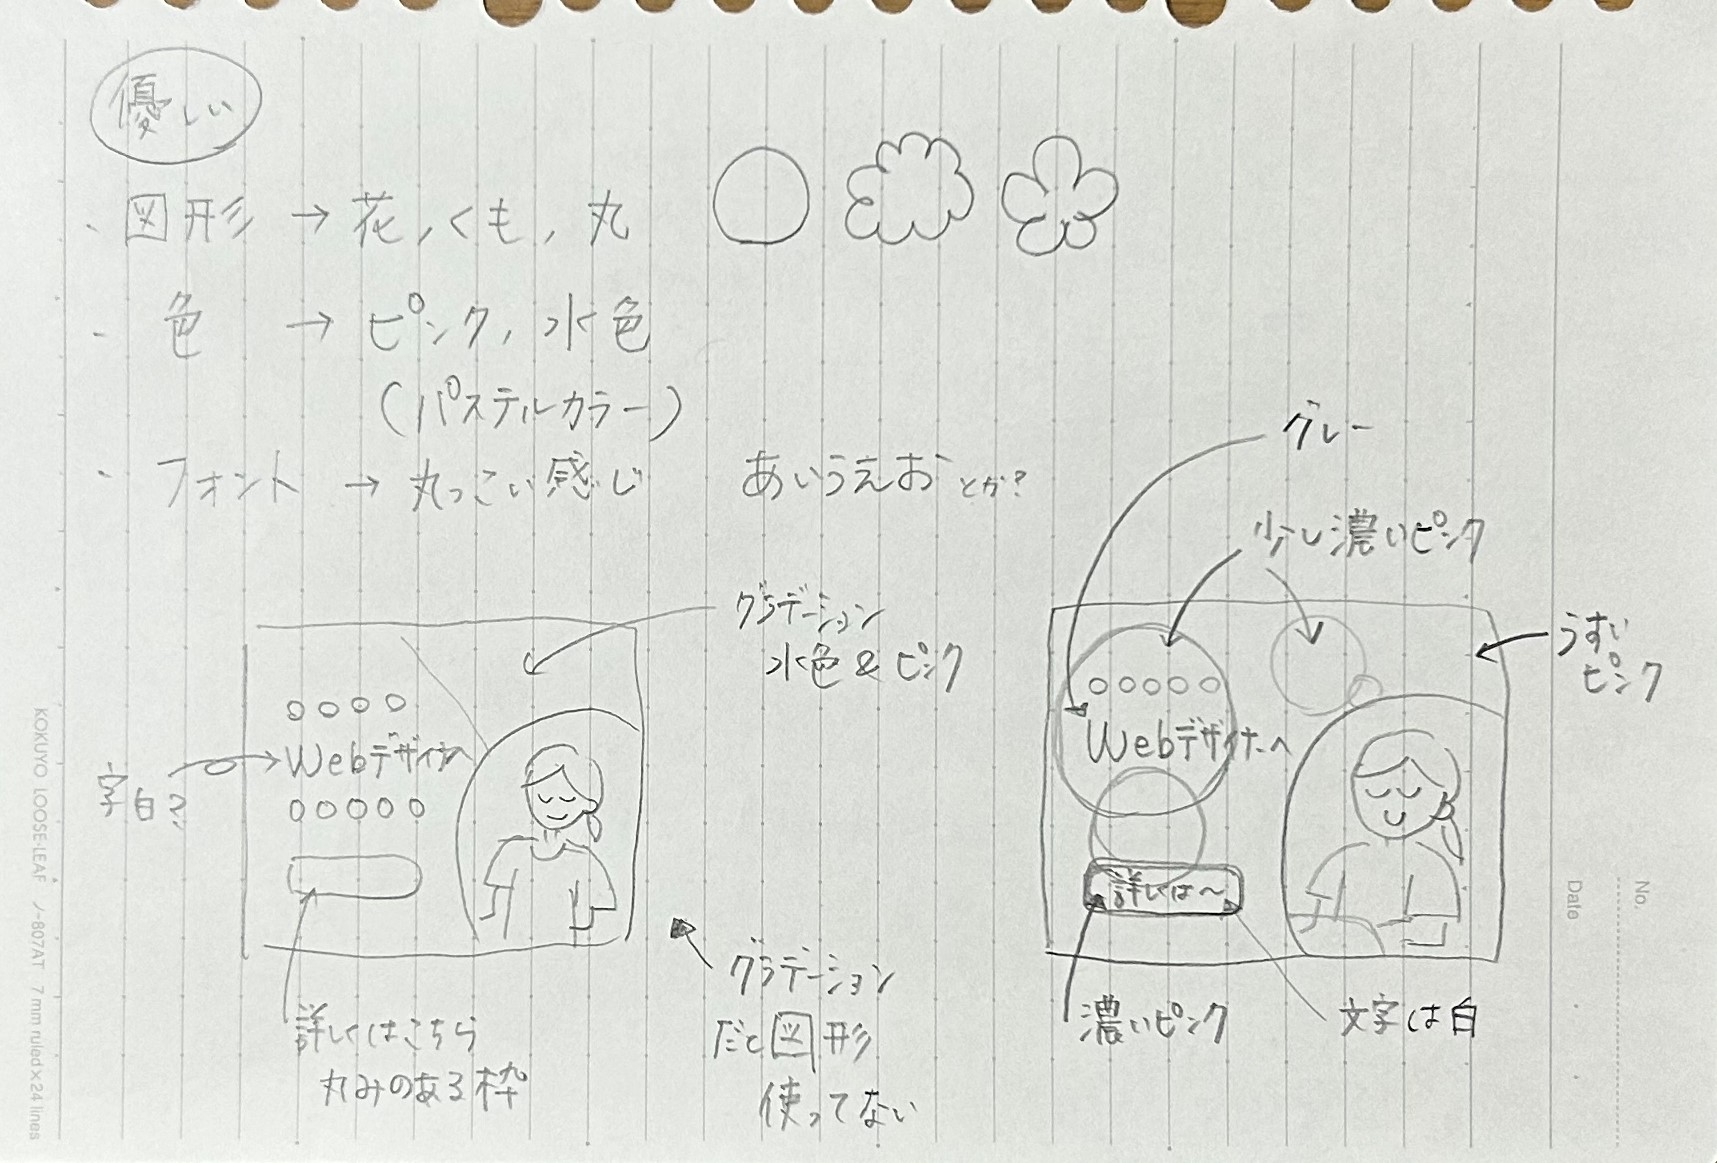 優しい
・図形 → 花,くも,丸
・色 → ピンク,水色
(パステルカラー)
・フォント → 丸っこい感じ あいうえおとか?
グラデーション
水色&ピンク
○○○○
Webデザイナーへ
○○○○○
字白?
詳しくはこちら
丸みのある枠
グラデーション
だと図形
使ってない
グレー
少し濃いピンク
うすい
ピンク
○○○○○
Webデザイナーへ
詳しくは〜
濃いピンク
文字は白
No.
Date
KOKUYO LOOSE-LEAF ノ-807AT 7 mm ruled×24 lines